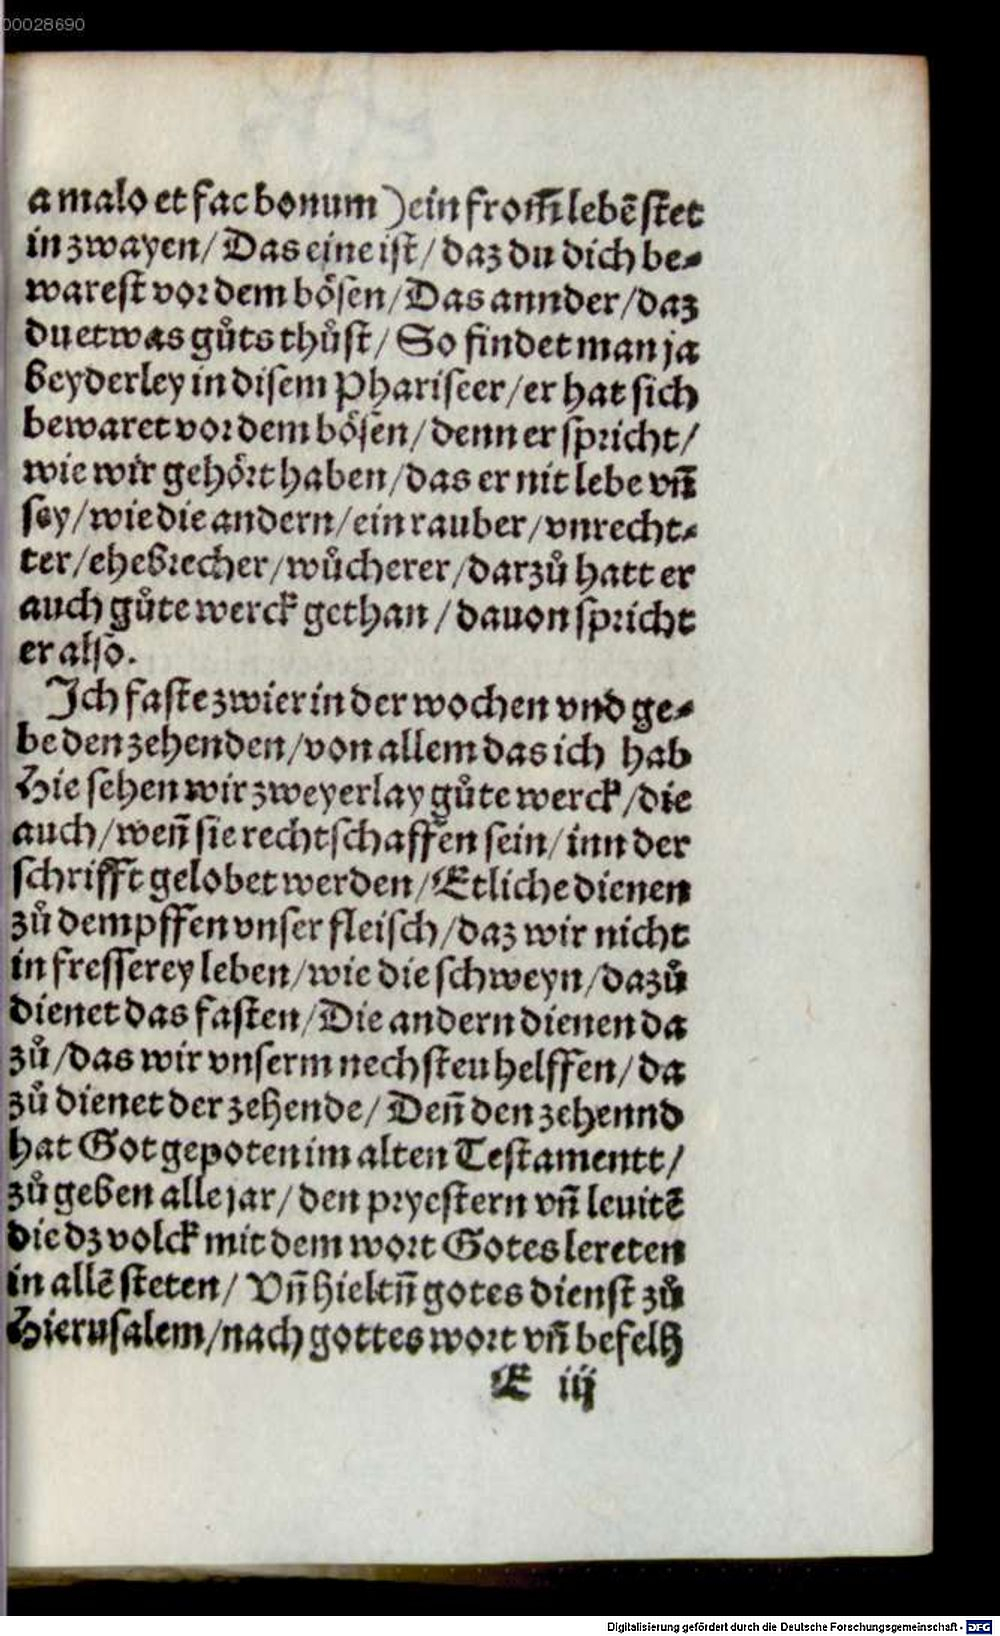 00028690
a malo et fac bonum) ein from̃ lebẽ stet
in zwayen/ Das eine ist/ daz du dich be⸗
warest vor dem bösen/ Das annder/ daz
du etwas gůts thůst/ So findet man ja
beyderley in disem Phariseer/ er hat sich
bewaret vor dem bösen/ denn er spricht/
wie wir gehört haben/ das er nit lebe vñ
sey/ wie die andern/ ein rauber/ vnrecht⸗
ter/ ehebrecher/ wůcherer/ darzů hatt er
auch gůte werck gethan/ dauon spricht
er also.
Ich faste zwier in der wochen vnd ge⸗
be den zehenden/ von allem das ich hab
Hie sehen wir zweyerlay gůte werck/ die
auch/ weñ sie rechtschaffen sein/ inn der
schrifft gelobet werden/ Etliche dienen
zů dempffen vnser fleisch/ daz wir nicht
in fresserey leben/ wie die schweyn/ dazů
dienet das fasten/ Die andern dienen da
zů/ das wir vnserm nechsten helffen/ da
zů dienet der zehende/ Deñ den zehennd
hat Got gepoten im alten Testamentt/
zů geben alle jar/ den pryestern vñ leuitẽ
die dz volck mit dem wort Gotes lereten
in allẽ steten/ Vñ hieltñ gotes dienst zů
Hierusalem/ nach gottes wort vñ befelh
E iij
Digitalisierung gefördert durch die Deutsche Forschungsgemeinschaft - DFG